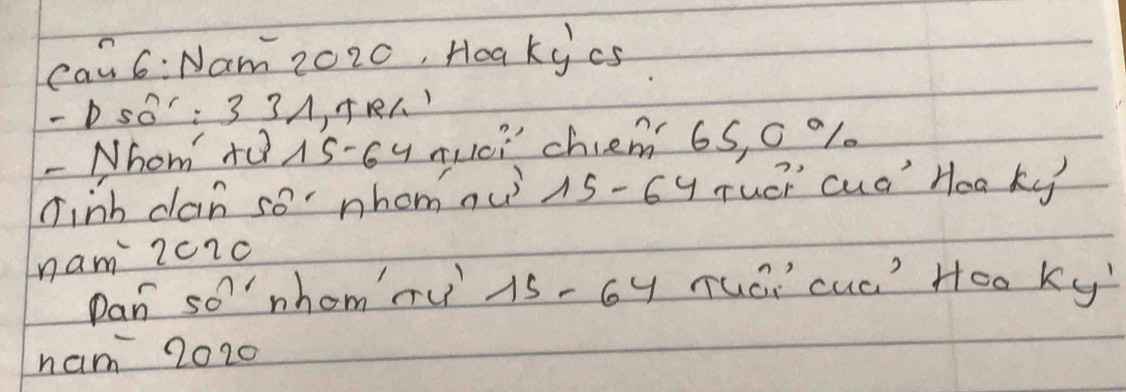 Câu 6: Năm 2020. Hoa Kỳ cs
- D số: 331, trệ
- Nhóm từ 15-64 tuổi chiếm 65,0%
Tính dân số nhóm từ 15-64 tuổi của Hoa Kỳ
năm 2020
Dân số nhóm từ 15-64 tuổi của Hoa Kỳ
năm 2020